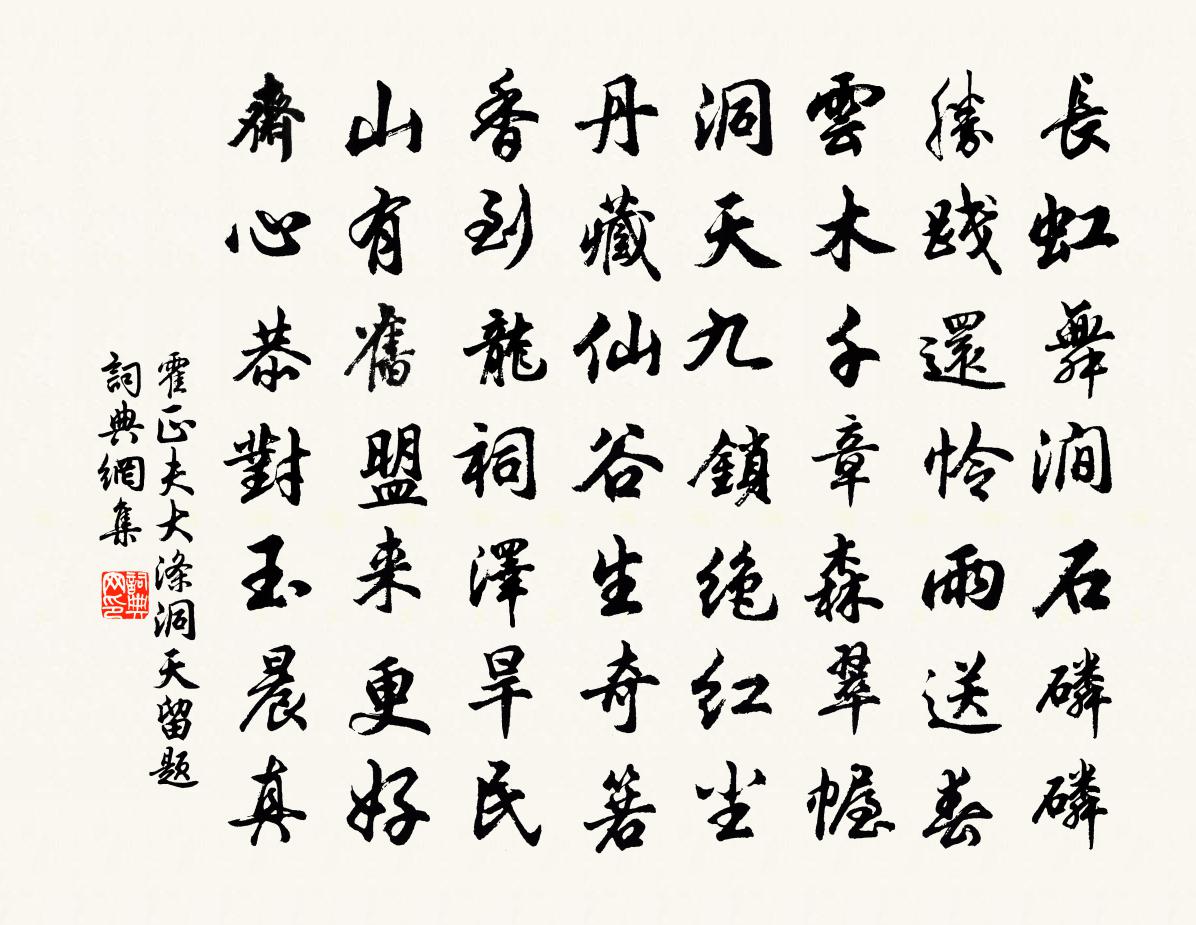 長虹舞澗石磷磷
勝踐還憐雨送春
雲木千章森翠幄
洞天九鎖絶紅塵
丹藏仙谷生奇箬
香到龍祠澤旱民
山有舊盟来更好
齋心恭對玉晨真
霍正夫大滌洞天留題
詞典網集
詞典網印